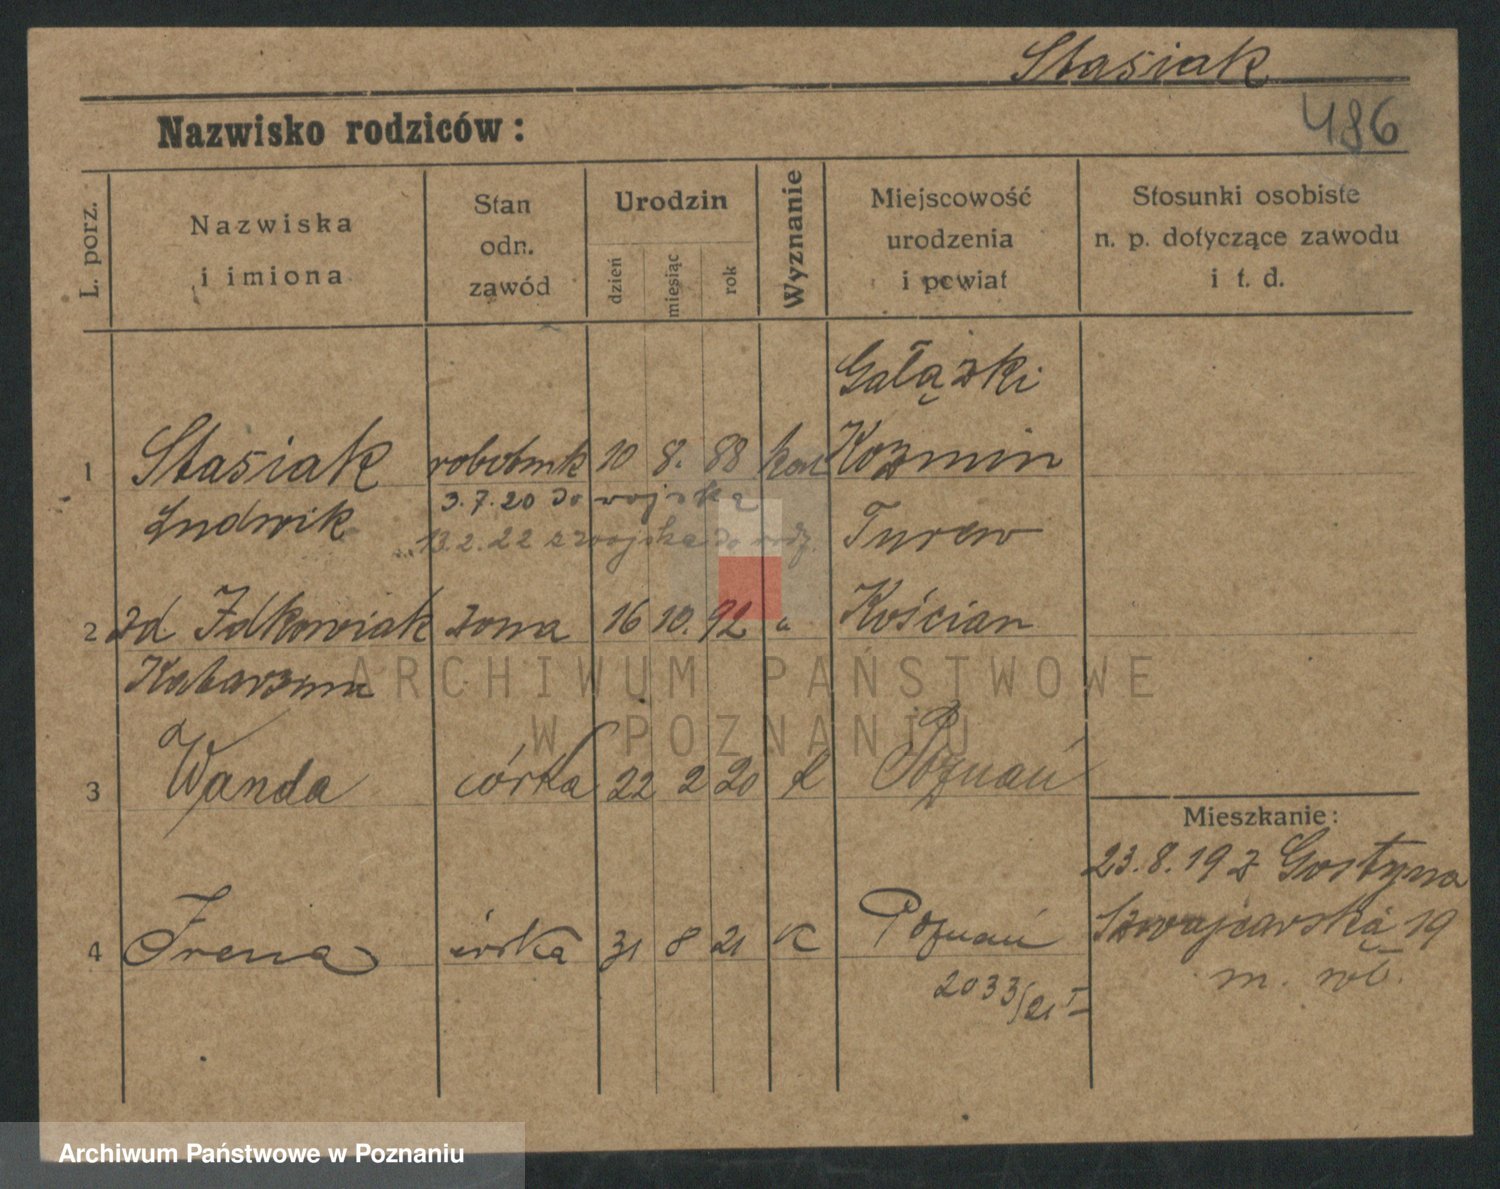 Stasiak
486
Nazwisko rodziców:
L. porz.
Nazwiska
i imiona
Stan
odn.
zawód
Urodzin
dzień
miesiąc
rok
Wyznanie
Miejscowość
urodzenia
i powiat
Stosunki osobiste
n. p. dotyczące zawodu
i t. d.
Gałązki
1 Stasiak robotnik 10 8. 88 kat Kozmin
Ludwik
3.7.20 do wojska
13.2.22 z wojska do rodz.
Turew
2 zd Idkowiak żona 16 10. 92 " Kościan
Katarzyna
3 Wanda córka 22 2 20 k Poznań
4 Irena córka 31 8 21 K Poznań
2033/21 I
Mieszkanie:
23.8.19 z Gostyna
Szwajcarska 19
m. wł.
ARCHIWUM PAŃSTWOWE
W POZNANIU
Archiwum Państwowe w Poznaniu